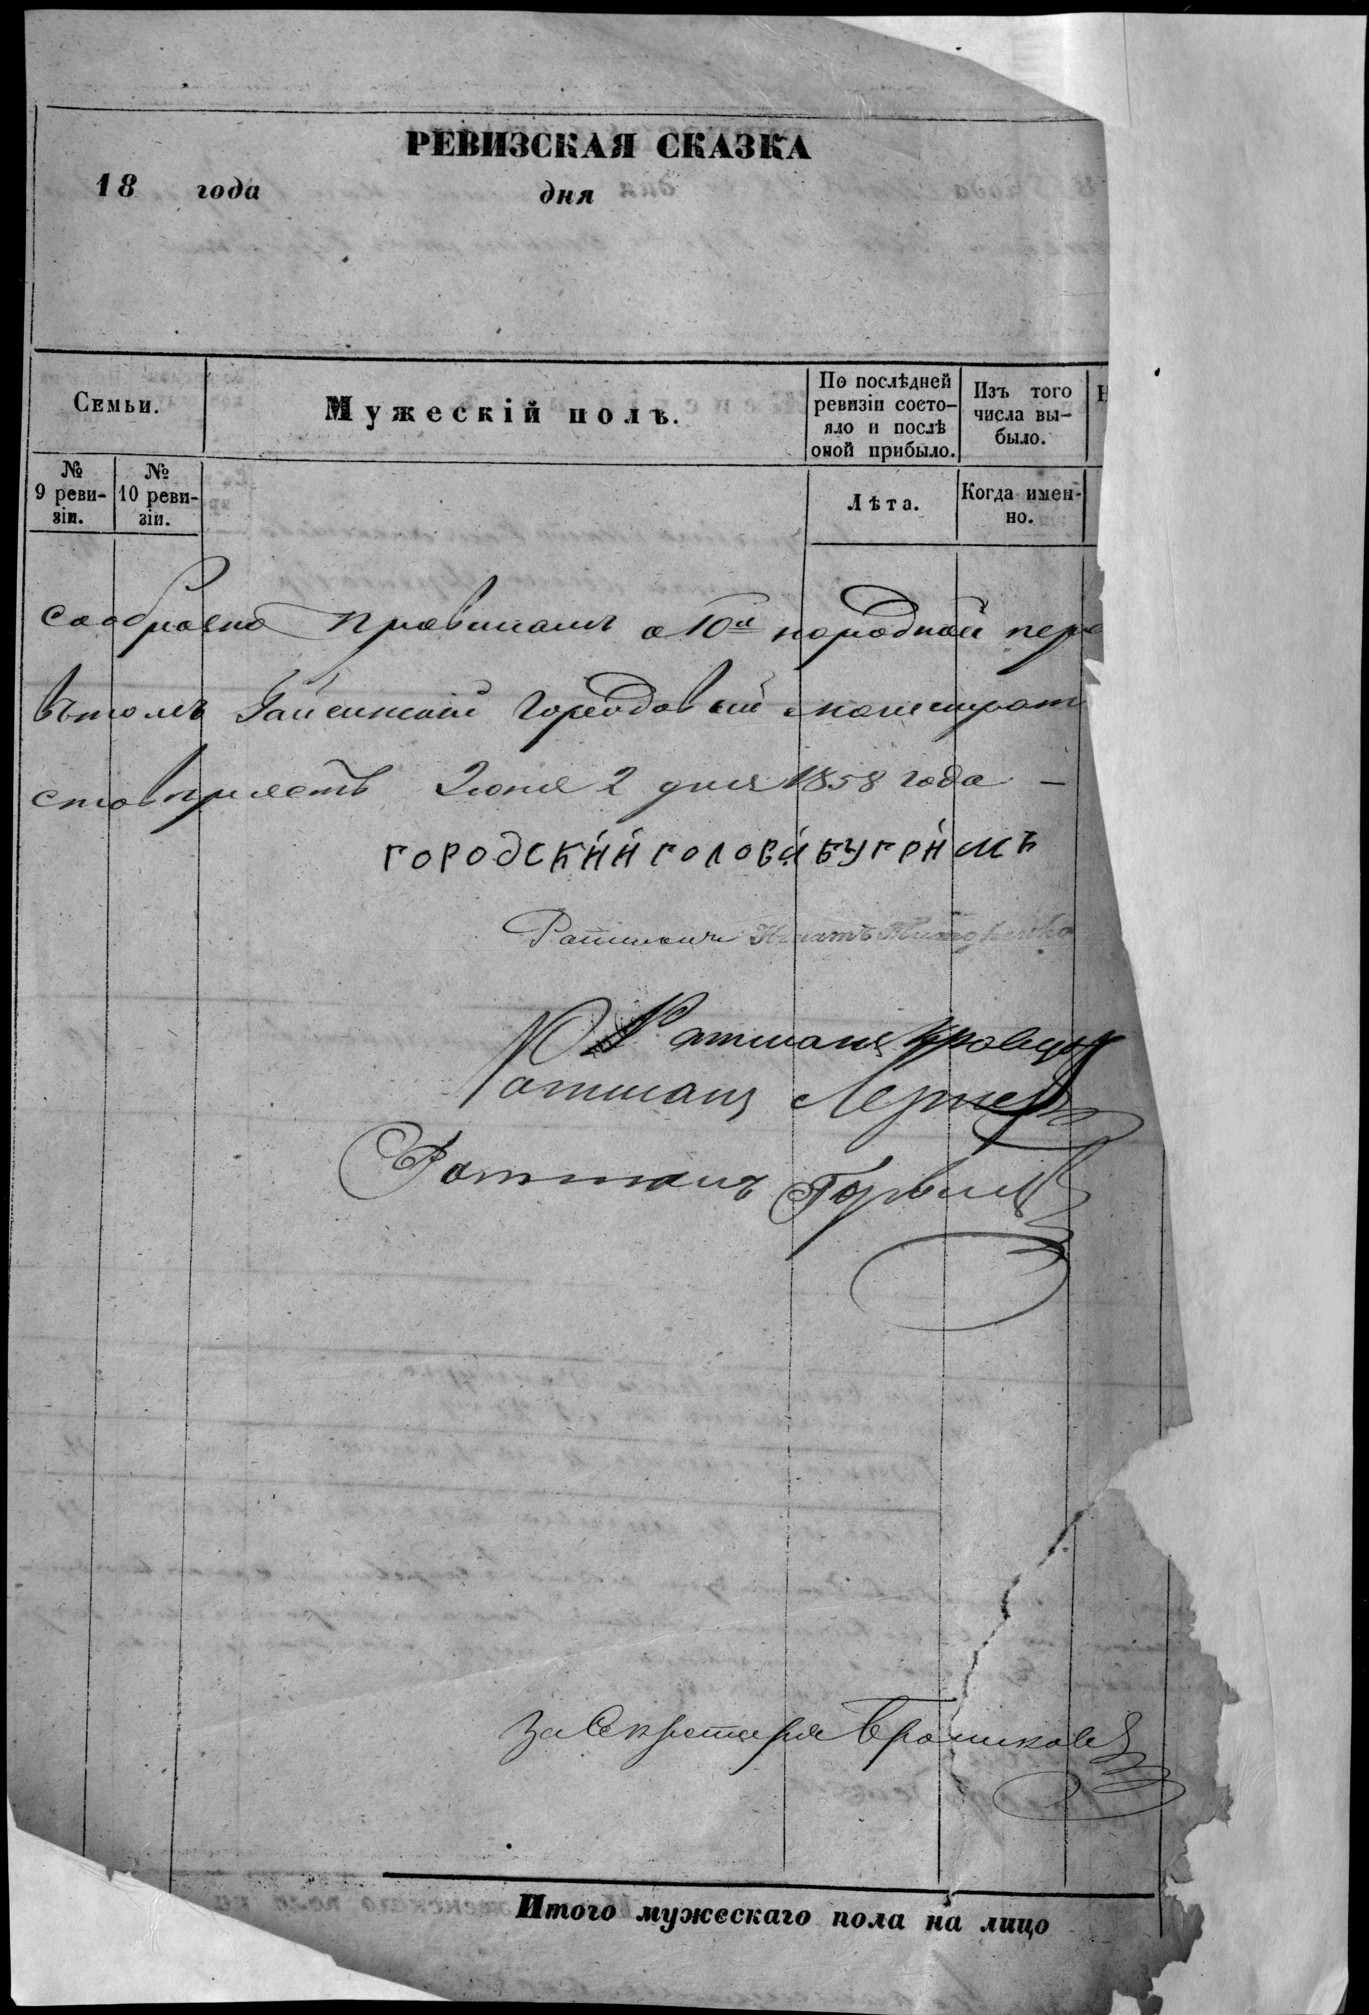 РЕВИЗСКАЯ СКАЗКА
18 года дня
Семьи.
Мужескій полъ.
По послѣдней ревизіи состо-яло и послѣ оной прибыло.
Изъ того числа вы-было.
№ 9 реви-зіи.
№ 10 реви-зіи.
Лѣта.
Когда имен-но.
сообразно правиламъ о 10й народной пере
въ томъ Гайсинскій Городовый магистрат
Іюня 2 дня 1858 года —
ГОРОДСКИЙ ГОЛОВА БУГРИМЪ
Ратманъ Игнатъ
Ратманъ Кравцов
Ратманъ Лернер
Ратманъ Гурвиц
За Секретаря Брониковс
Итого мужескаго пола на лицо